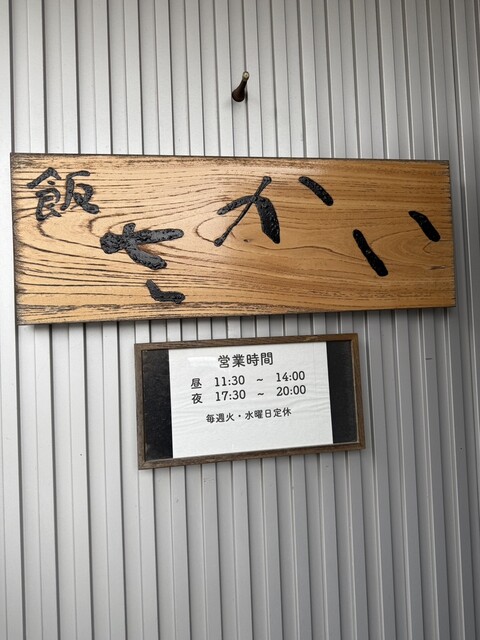 飯 さかい
営業時間
昼 11:30 ～ 14:00
夜 17:30 ～ 20:00
毎週火・水曜日定休